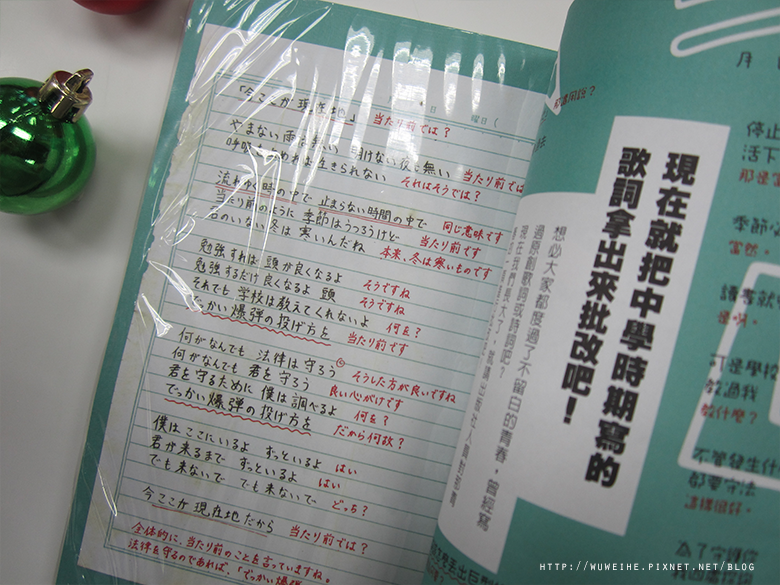 月 日 曜日(
「今ここが現在地」 当たり前では?
やまない雨は無い 明けない夜も無い 当たり前では
呼吸 止めれば生きられない それはそうでは?
流れゆく時の中で 止まらない時間の中で 同じ意味です
当たり前のように 季節はうつろうけど 当たり前です
君のいない冬は 寒いんだね 本来、冬は寒いものです
勉強すれば 頭が良くなるよ そうですね
勉強するだけ 良くなるよ 頭 そうですね
それでも 学校は教えてくれないよ 何を?
でっかい爆弾の投げ方を 当たり前です
何がなんでも 法律は守ろう そうした方が良いですね
何がなんでも 君を守ろう 良い心がけです
君を守るために 僕は調べるよ 何を?
でっかい爆弾の投げ方を だから何故?
僕は ここにいるよ ずっといるよ はい
君が来るまで ずっといるよ はい
でも来ないで でも来ないで どっち?
今ここが現在地だから 当たり前では?
全体的に、当たり前のことを言っていますね。
法律を守るのであれば、「でっかい爆弾
現在就把中學時期寫的
歌詞拿出來批改吧!
想必大家都度過了不留白的青春,曾經寫
過原創歌詞或詩詞吧?
月
停止
活下
那是當
季節
當然。
讀書就
是呀。
可是學校
教過我
教什麼?
不管發生什
都要守法
這樣很好。
為了守護你
HTTP://WUWEIHE.PIXNET.NET/BLOG